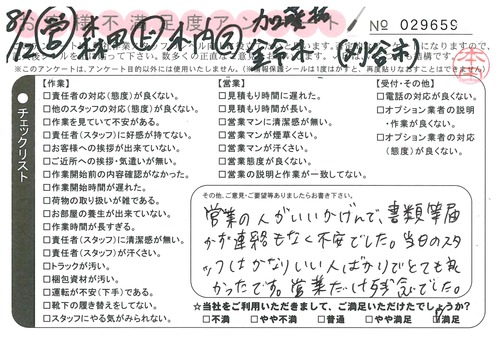 8/1 ㊂ 森田 ㊦ 木内 ② 加藤様
お客様不満足度アンケート
№ 029659
※このアンケートは、アンケート目的以外には使用いたしません。(※情報保護シールは1度はがすと、再度貼りなおすことはできません)
チェックリスト
【作業】
□責任者の対応(態度)が良くない。
□他のスタッフの対応(態度)が良くない。
□作業を見ていて不安がある。
□責任者(スタッフ)に好感が持てない。
□お客様への挨拶が出来ていない。
□ご近所への挨拶・気遣いが無い。
□作業開始前の内容確認がなかった。
□作業開始時間が遅れた。
□荷物の取り扱いが雑である。
□お部屋の養生が出来ていない。
□作業時間が長すぎる。
□責任者(スタッフ)に清潔感が無い。
□責任者(スタッフ)が汗くさい。
□トラックが汚い。
□梱包資材が汚い。
□運転が不安(下手)である。
□靴下の履き替えをしてない。
□スタッフにやる気がみられない。
【営業】
□見積もり時間に遅れた。
□見積もり時間が長い。
□営業マンに清潔感が無い。
□営業マンが煙草くさい。
□営業マンが汗くさい。
□営業の態度が良くない。
□営業の説明と作業が一致してない。
【受付・その他】
□電話の対応が良くない。
□オプション業者の説明
・作業が良くない。
□オプション業者の対応
(態度)が良くない。
その他、ご意見・ご要望等ありましたらお書き下さい。
営業の人がいいかげんで、書類等届
かず連絡もなく不安でした。当日のスタ
ッフはかなりいい人ばかりでとても良
かったです。営業だけ残念でした。
☆当社をご利用いただきまして、ご満足いただけたでしょうか?
□不満 □やや不満 □普通 □やや満足 □満足